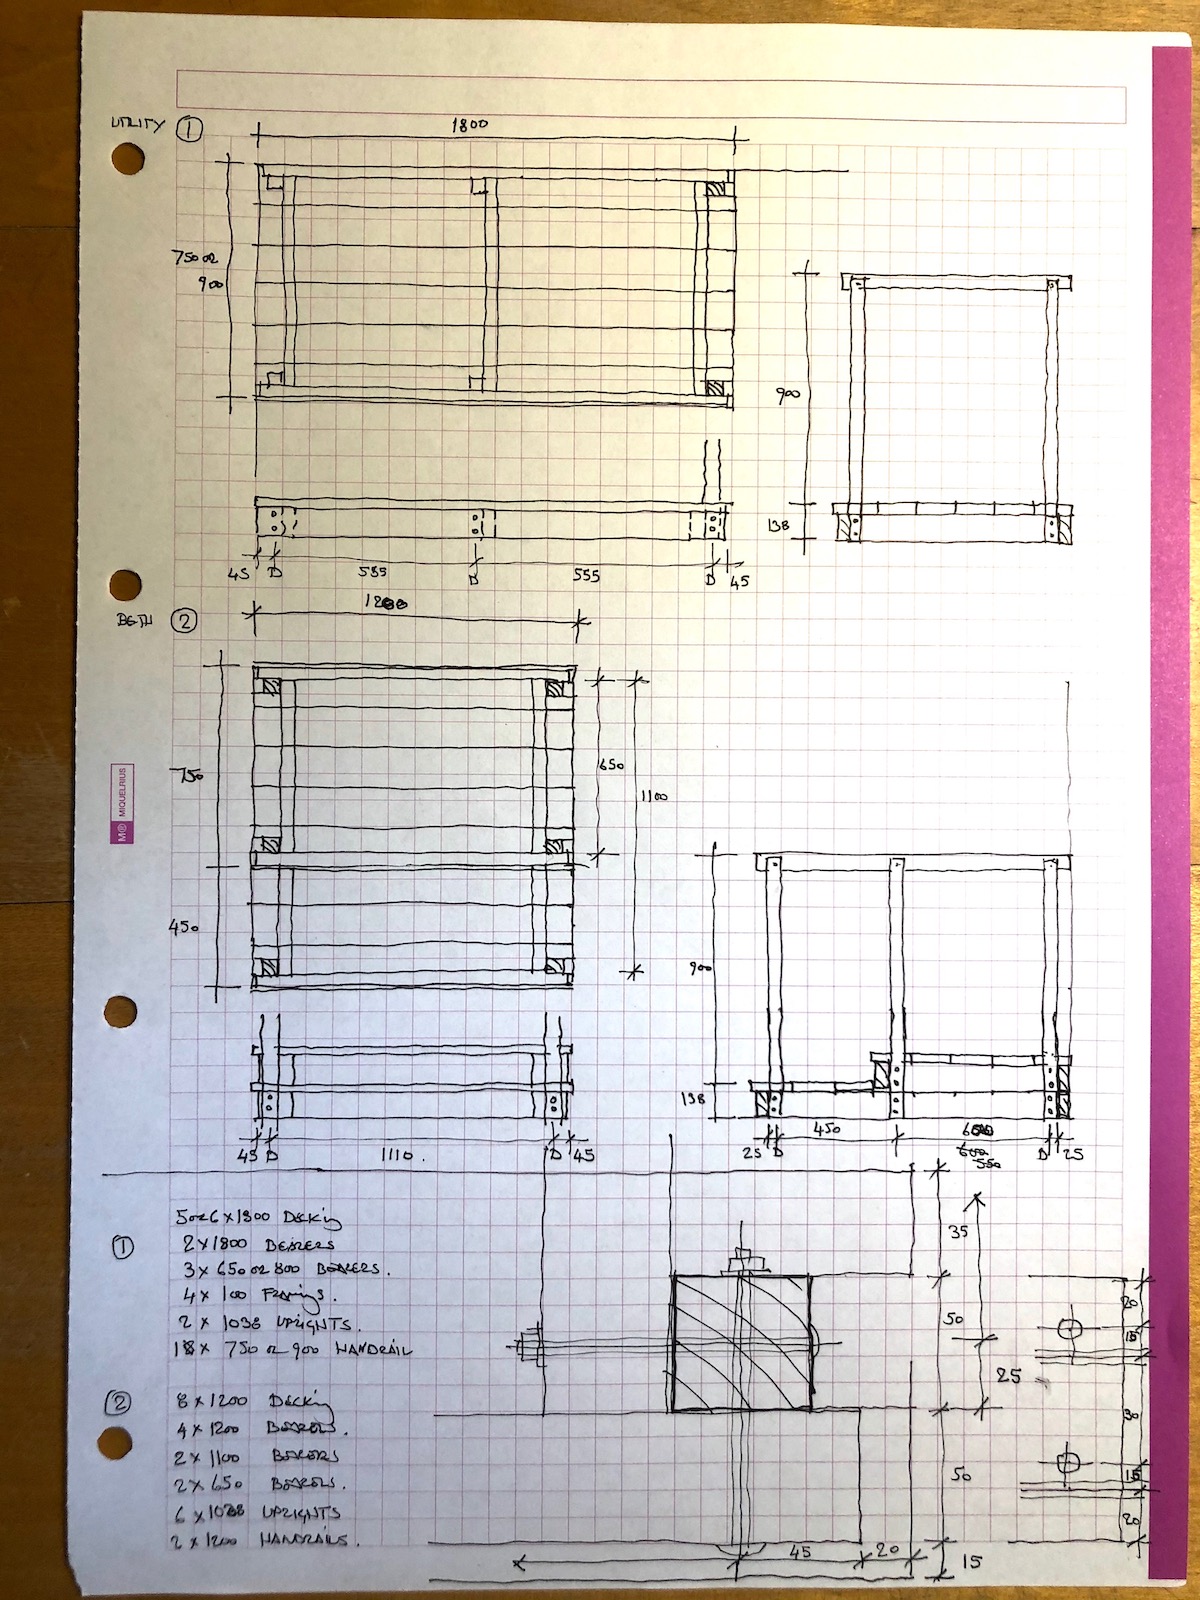 UTILITY 1
1800
750 or
900
900
138
45 D 555 D 555 D 45
BETH 2
1200
750
650
1100
450
900
138
45 D 1110. D 45
25 D 450 600 D 25
600
550
M® MIQUELRIUS
1
5 or 6 x 1800 Decking
2 x 1800 BEARERS
3 x 650 or 800 BEARERS.
4 x 100 Framings.
2 x 1038 UPRIGHTS.
1 x 750 or 900 HANDRAIL
2
8 x 1200 Decking
4 x 1200 BEARERS.
2 x 1100 BEARERS
2 x 650 BEARERS.
6 x 1038 UPRIGHTS
2 x 1200 HANDRAILS.
35
50
25
50
45 20
15
20
15
30
15
20